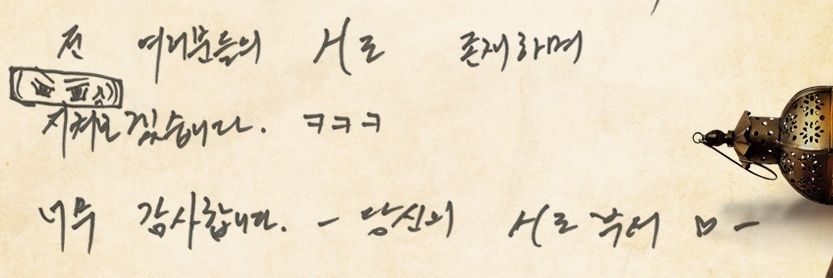 전 여러분들의 H로 존재하며
지켜보겠습니다. ㅋㅋㅋ
너무 감사합니다. - 당신의 H로부터 ㅁ -